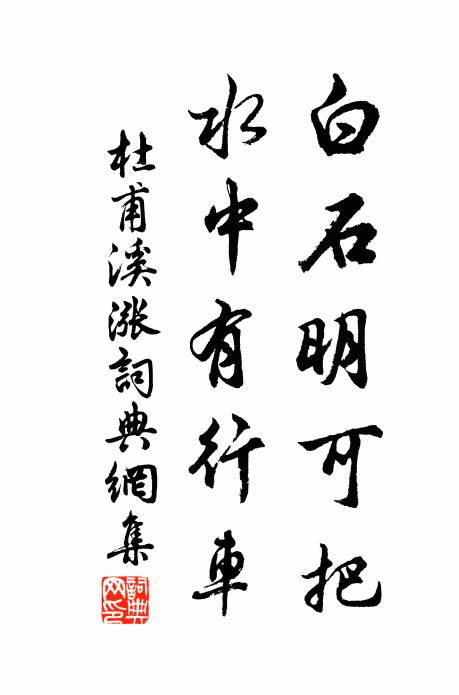 白石明可把
水中有行車
杜甫溪漲詞典網集
詞典网印